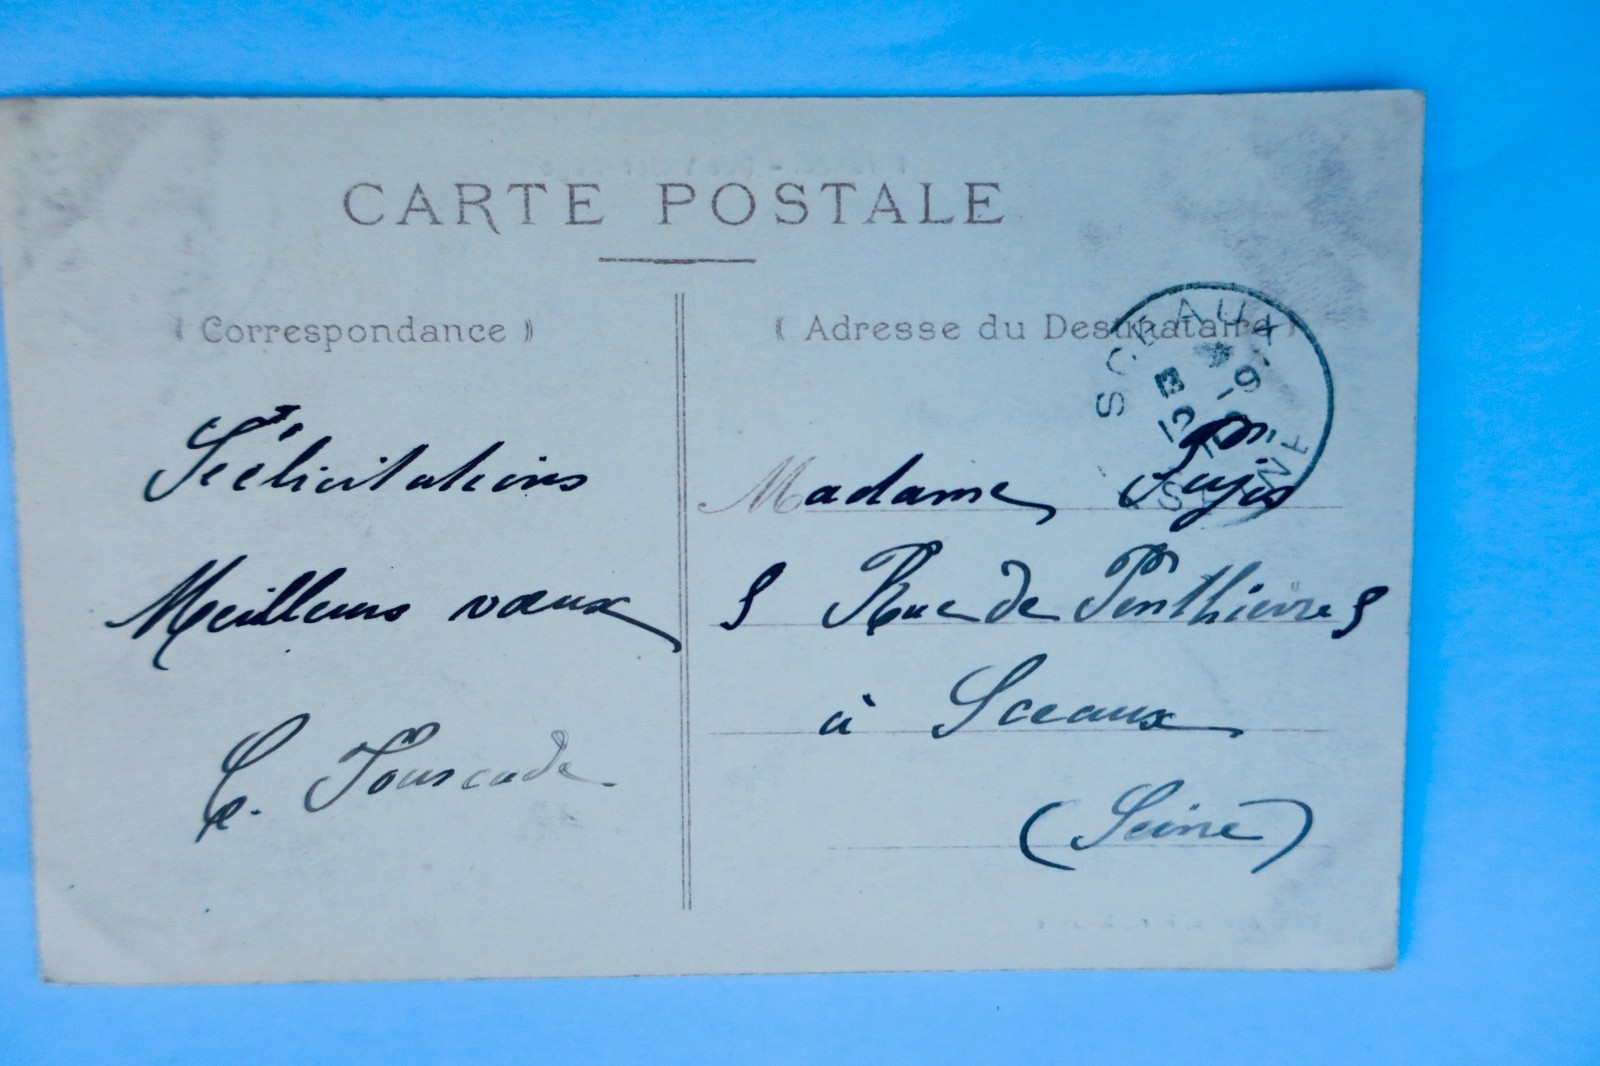 CARTE POSTALE
( Correspondance )
( Adresse du Destinataire )
SCEAUX
SEINE
Félicitations
Meilleurs vœux
Madame Pujos
5 Rue de Penthièvre 5
à Sceaux
(Seine)